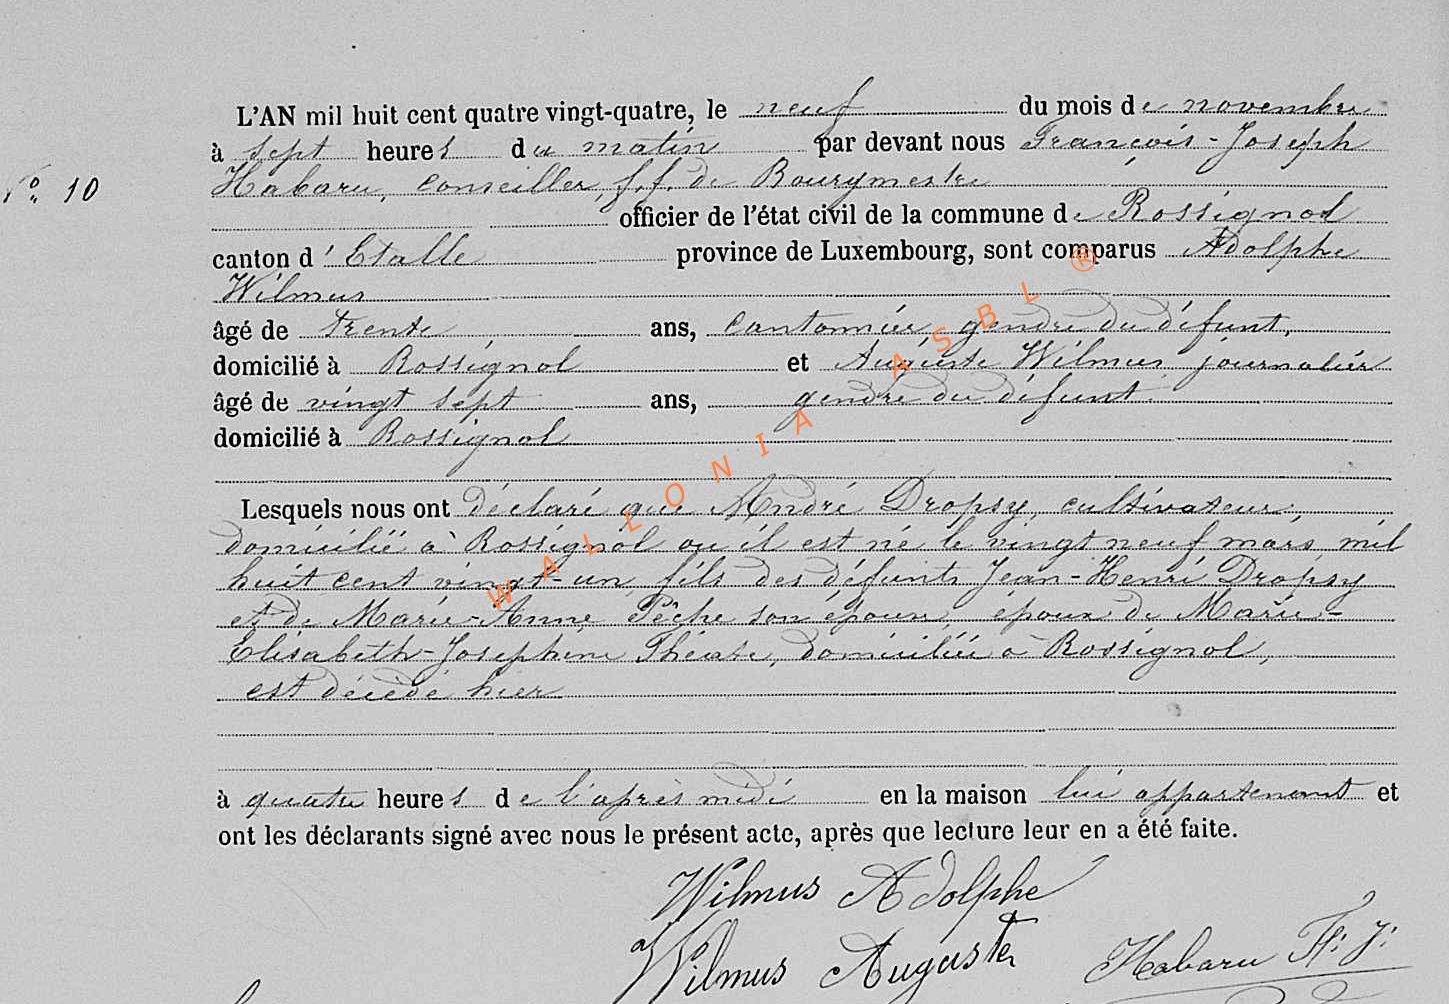 L'AN mil huit cent quatre vingt-quatre, le neuf du mois de novembre
à sept heures du matin par devant nous François-Joseph
N° 10
Habaru, Conseiller, f.f. de Bourgmestre
officier de l'état civil de la commune de Rossignol
canton d'Etalle province de Luxembourg, sont comparus Adolphe
Wilmus
âgé de trente ans, cantonnier, gendre du défunt,
domicilié à Rossignol et Auguste Wilmus journalier
âgé de vingt sept ans, gendre du défunt
domicilié à Rossignol
Lesquels nous ont déclaré que André Dropsy, cultivateur,
domicilié à Rossignol où il est né le vingt neuf mars mil
huit cent vingt-un, fils des défunts Jean-Henri Dropsy
et de Marie-Anne Pêche son épouse, époux de Marie-
Elisabeth-Josephine Théate, domiciliée à Rossignol,
est décédé hier
à quatre heures de l'après midi en la maison lui appartenant et
ont les déclarants signé avec nous le présent acte, après que lecture leur en a été faite.
Wilmus Adolphe
Wilmus Auguste Habaru F. J.
WALLONIA ASBL ®